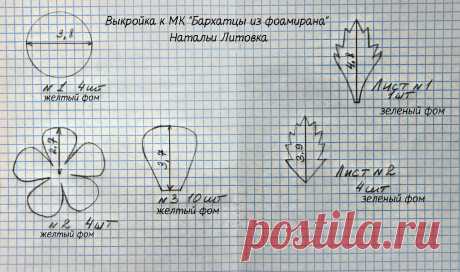 Выкройка к МК "Бархатцы из фоамирана"
Натальи Литовка
3,8
№1 4 шт
желтый фом
4,8
Лист №1
1 шт
зеленый фом
2,7
№2 4 шт
желтый фом
3,7
№3 10 шт
желтый фом
3,9
Лист №2
4 шт
зеленый фом
postila.ru